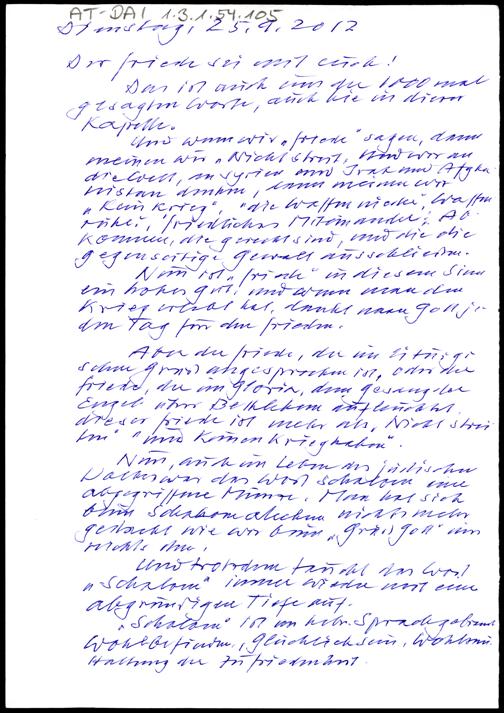 AT-DAI 1.3.1.54.105
Dienstag, 25.9.2012
Der Friede sei mit euch!
Das ist auch eins der 1000 mal
gesagten Worte, auch hie in dieser
Kapelle.
Und wenn wir „Friede" sagen, dann
meinen wir „Nicht Streit. Und wir an
die Welt, an Syrien und Irak und Afgha
nistan denken, dann meinen wir
„Kein Krieg", „die Waffen nieder, Waffen
ruhe, friedliches Miteinander, Ab
kommen, die gerecht sind, und die die
gegenseitige Gewalt ausschließen.
Nun ist „Friede" in diesem Sinn
ein hohes Gut, und wenn man den
Krieg erlebt hat, dankt man Gott je
den Tag für den Frieden.
Aber der Friede, der im liturgi
schen Gruß angesprochen ist, oder der
Friede, der im Gloria, dem Gesang der
Engel über Bethlehem aufleuchtet,
dieser Friede ist mehr als „Nicht strei
ten" und „keinen Krieg haben".
Nun, auch im Leben des jüdischen
Volkes war das Wort Schalom eine
abgegriffene Münze. Man hat sich
beim Schalom alechem nichts mehr
gedacht wie wir beim „Grüß Gott" uns
nichts den.
Und trotzdem taucht das Wort
„Schalom" immer wieder mit eine
abgründigen Tiefe auf.
„Schalom" ist im hebr. Sprachgebrauch
Wohlbefinden, Glücklichsein, Wohlbau
Haltung der Zufriedenheit.